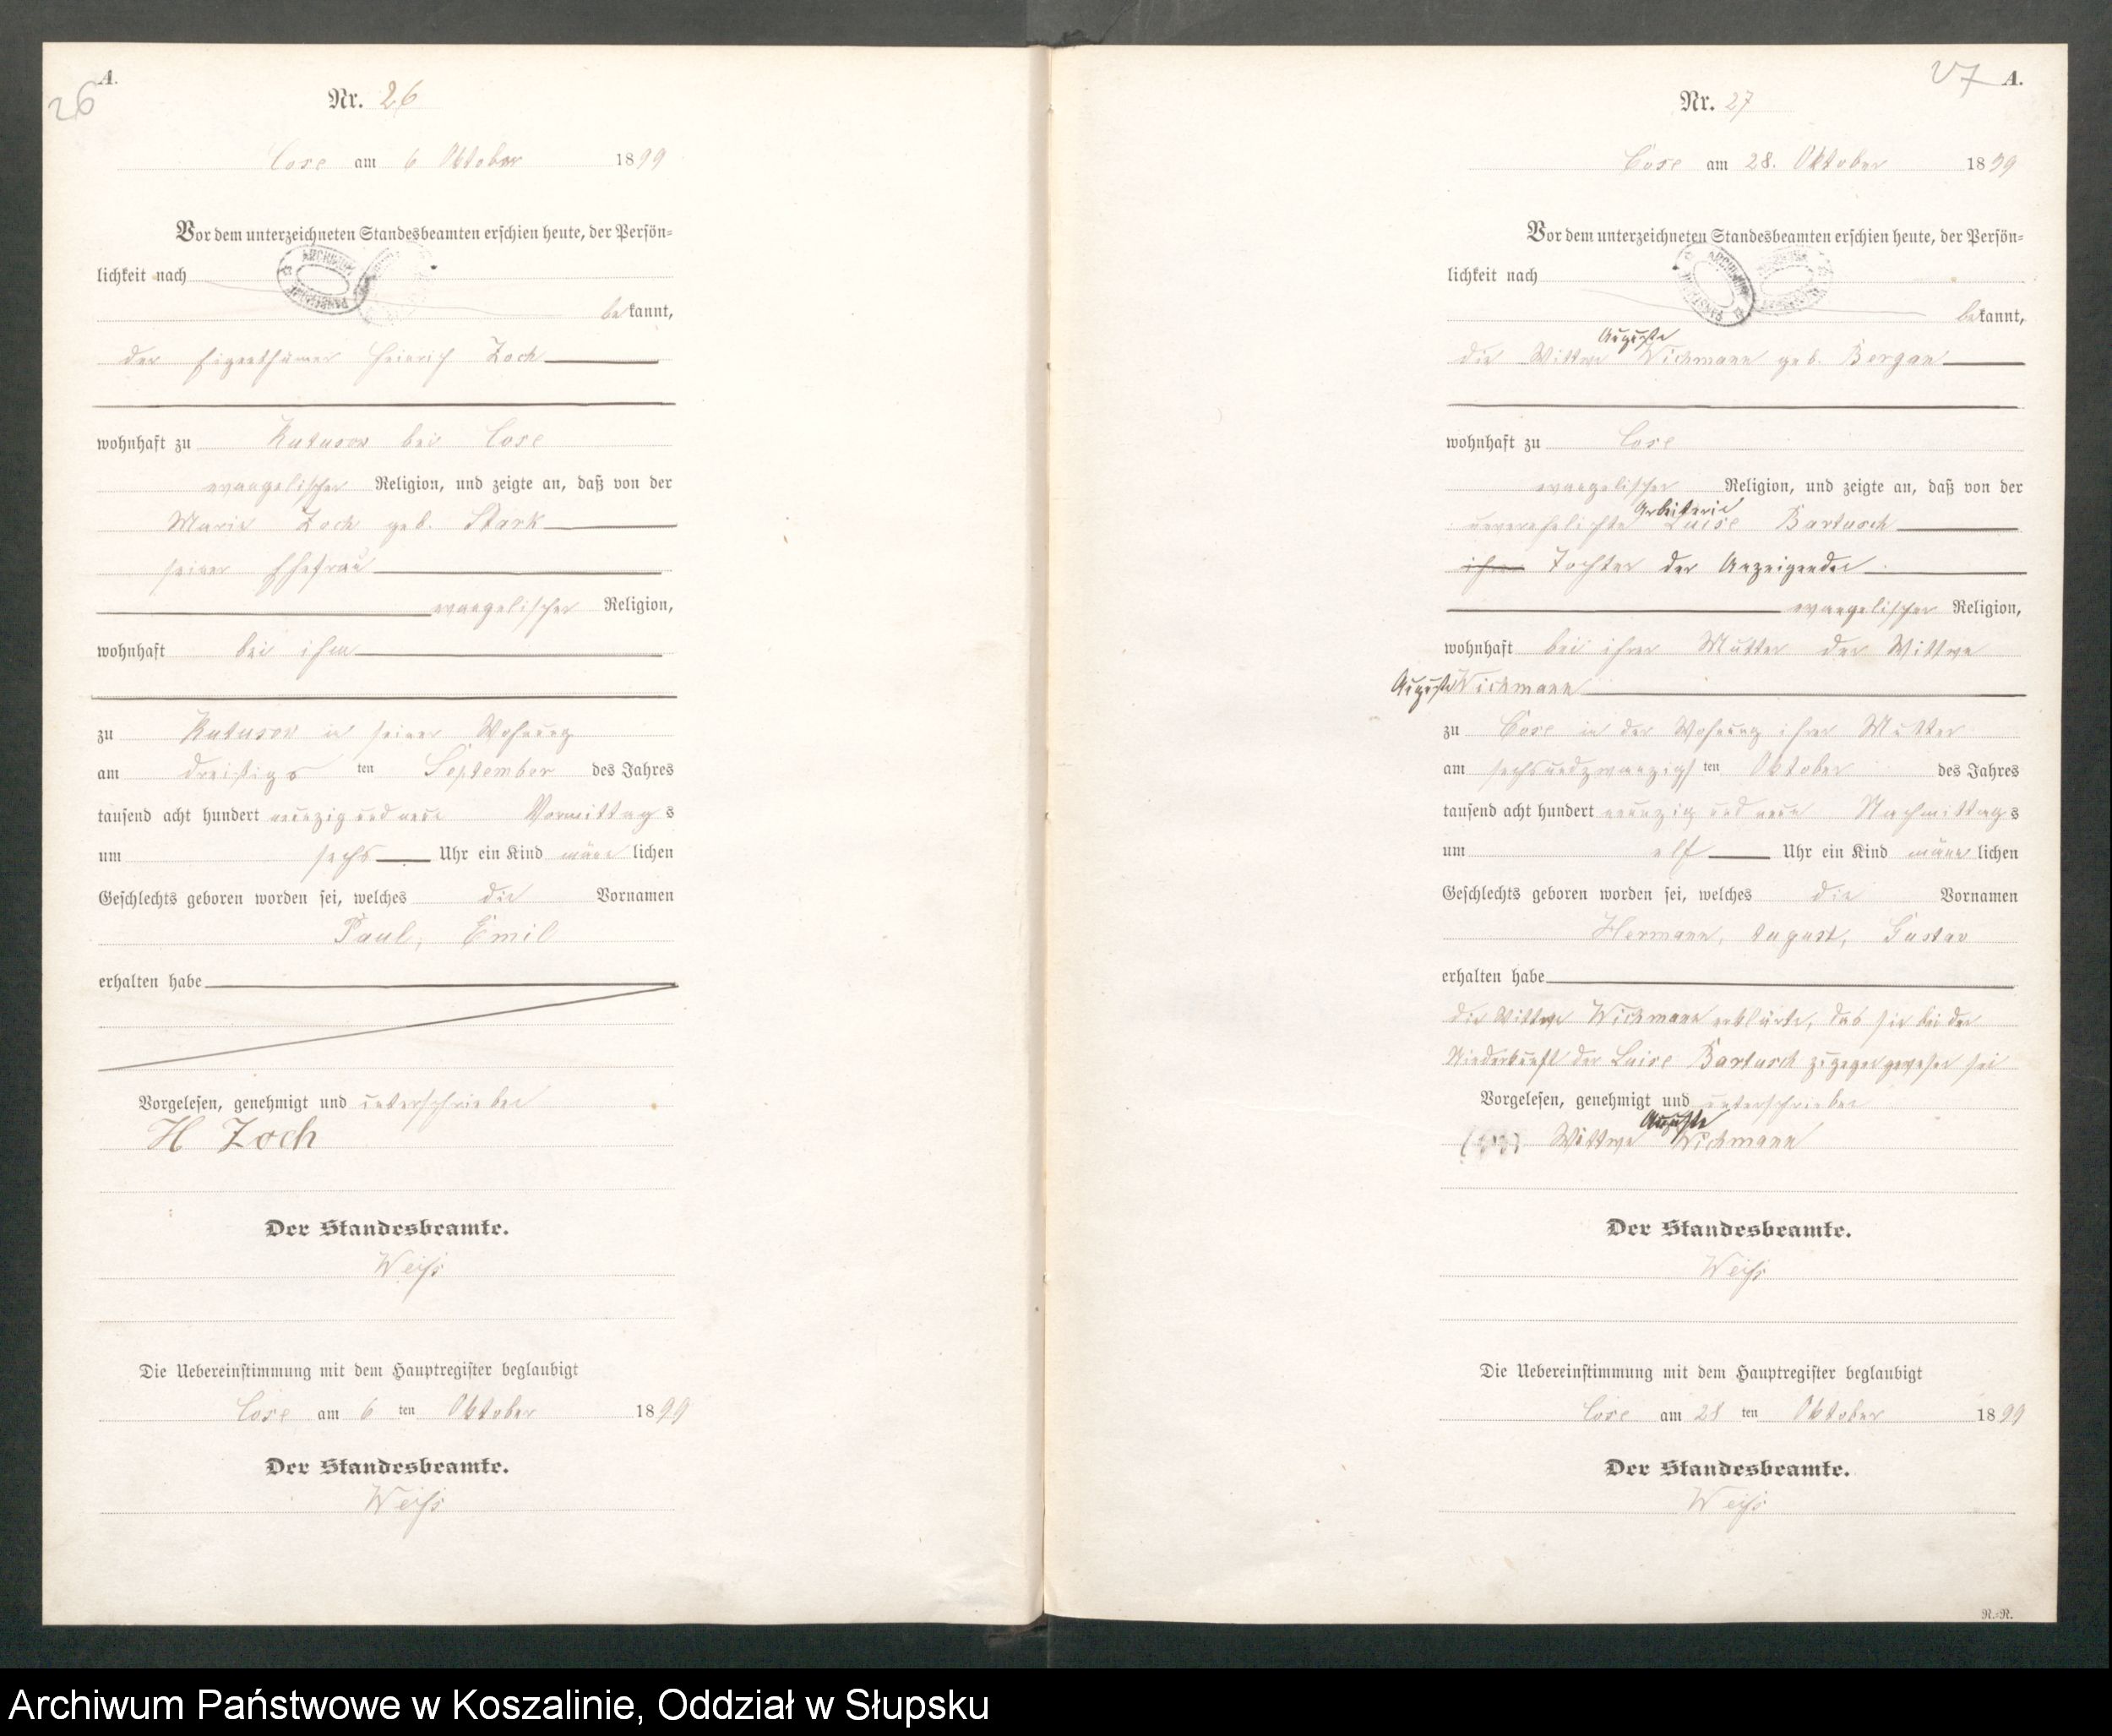 A.
26
Nr. 26
Cose am 6 Oktober 1899
Vor dem unterzeichneten Standesbeamten erschien heute, der Persön-
lichkeit nach
bekannt,
der Eigenthümer Heinrich Zoch
wohnhaft zu Kutusow bei Cose
evangelischer Religion, und zeigte an, daß von der
Marie Zoch geb. Stark
seiner Ehefrau
evangelischer Religion,
wohnhaft bei ihm
zu Kutusow in seiner Wohnung
am dreißigs ten September des Jahres
tausend acht hundert neunzig und neun Vormittags
um sechs Uhr ein Kind männlichen
Geschlechts geboren worden sei, welches die Vornamen
Paul, Emil
erhalten habe
Vorgelesen, genehmigt und unterschrieben
H Zoch
Der Standesbeamte.
Weiß
Die Uebereinstimmung mit dem Hauptregister beglaubigt
Cose am 6 ten Oktober 1899
Der Standesbeamte.
Weiß
27 A.
Nr. 27
Cose am 28. Oktober 1899
Vor dem unterzeichneten Standesbeamten erschien heute, der Persön-
lichkeit nach
bekannt,
Auguste
die Wittwe Wichmann geb. Bergan
wohnhaft zu Cose
evangelischer Religion, und zeigte an, daß von der
Arbeiterin
unverehelichte Luise Bartusch
ihrer Tochter der Anzeigenden
evangelischer Religion,
wohnhaft bei ihrer Mutter der Wittwe
Auguste Wichmann
zu Cose in der Wohnung ihrer Mutter
am sechsundzwanzigs ten Oktober des Jahres
tausend acht hundert neunzig und neun Nachmittags
um elf Uhr ein Kind männlichen
Geschlechts geboren worden sei, welches die Vornamen
Hermann, August, Gustav
erhalten habe
die Wittwe Wichmann erklärte, das sie bei der
Niederkunft der Luise Bartusch zugegen gewesen sei
Vorgelesen, genehmigt und unterschrieben
Auguste
Wittwe Wichmann
Der Standesbeamte.
Weiß
Die Uebereinstimmung mit dem Hauptregister beglaubigt
Cose am 28 ten Oktober 1899
Der Standesbeamte.
Weiß
R.-R.
Archiwum Państwowe w Koszalinie, Oddział w Słupsku